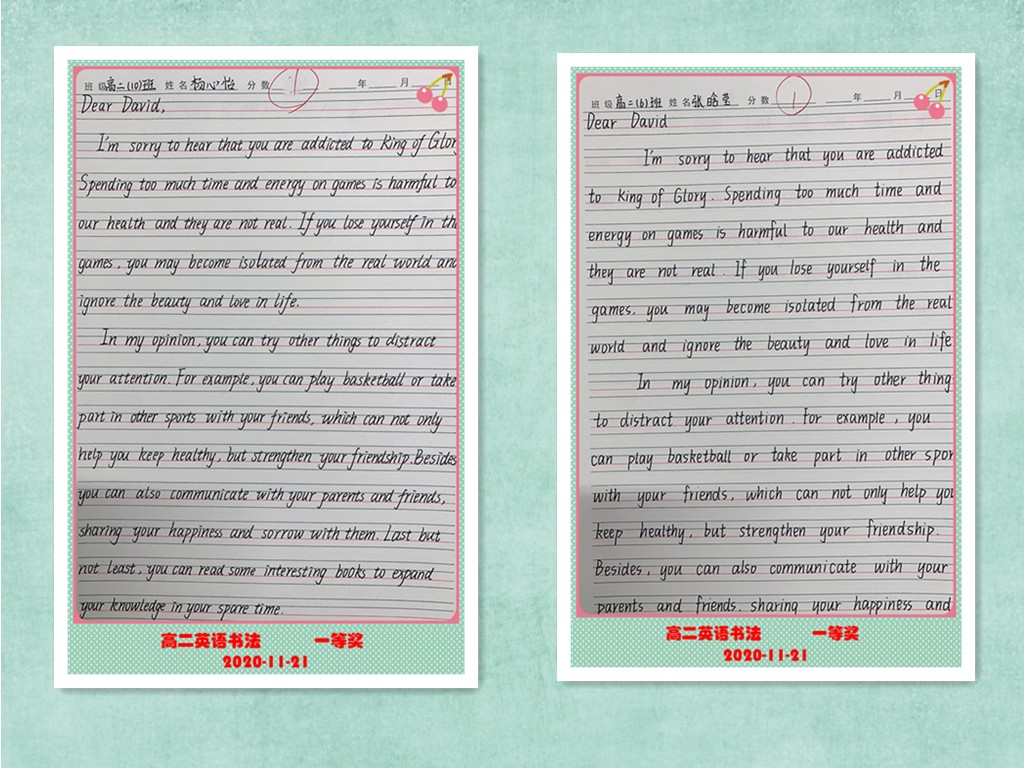 班级 高二(10)班 姓名 杨心怡 分数 1 年 月 日
Dear David,
I'm sorry to hear that you are addicted to King of Glor
Spending too much time and energy on games is harmful to
our health and they are not real. If you lose yourself in th
games, you may become isolated from the real world and
ignore the beauty and love in life.
In my opinion, you can try other things to distract
your attention. For example, you can play basketball or take
part in other sports with your friends, which can not only
help you keep healthy, but strengthen your friendship. Besides
you can also communicate with your parents and friends,
sharing your happiness and sorrow with them. Last but
not least, you can read some interesting books to expand
your knowledge in your spare time.
高二英语书法 一等奖
2020-11-21
班级 高二(6)班 姓名 张皓莹 分数 1 年 月 日
Dear David
I'm sorry to hear that you are addicted
to King of Glory. Spending too much time and
energy on games is harmful to our health and
they are not real. If you lose yourself in the
games, you may become isolated from the real
world and ignore the beauty and love in life
In my opinion, you can try other thing
to distract your attention. For example, you
can play basketball or take part in other spor
with your friends, which can not only help you
keep healthy, but strengthen your friendship.
Besides, you can also communicate with your
parents and friends. sharing your happiness and
高二英语书法 一等奖
2020-11-21